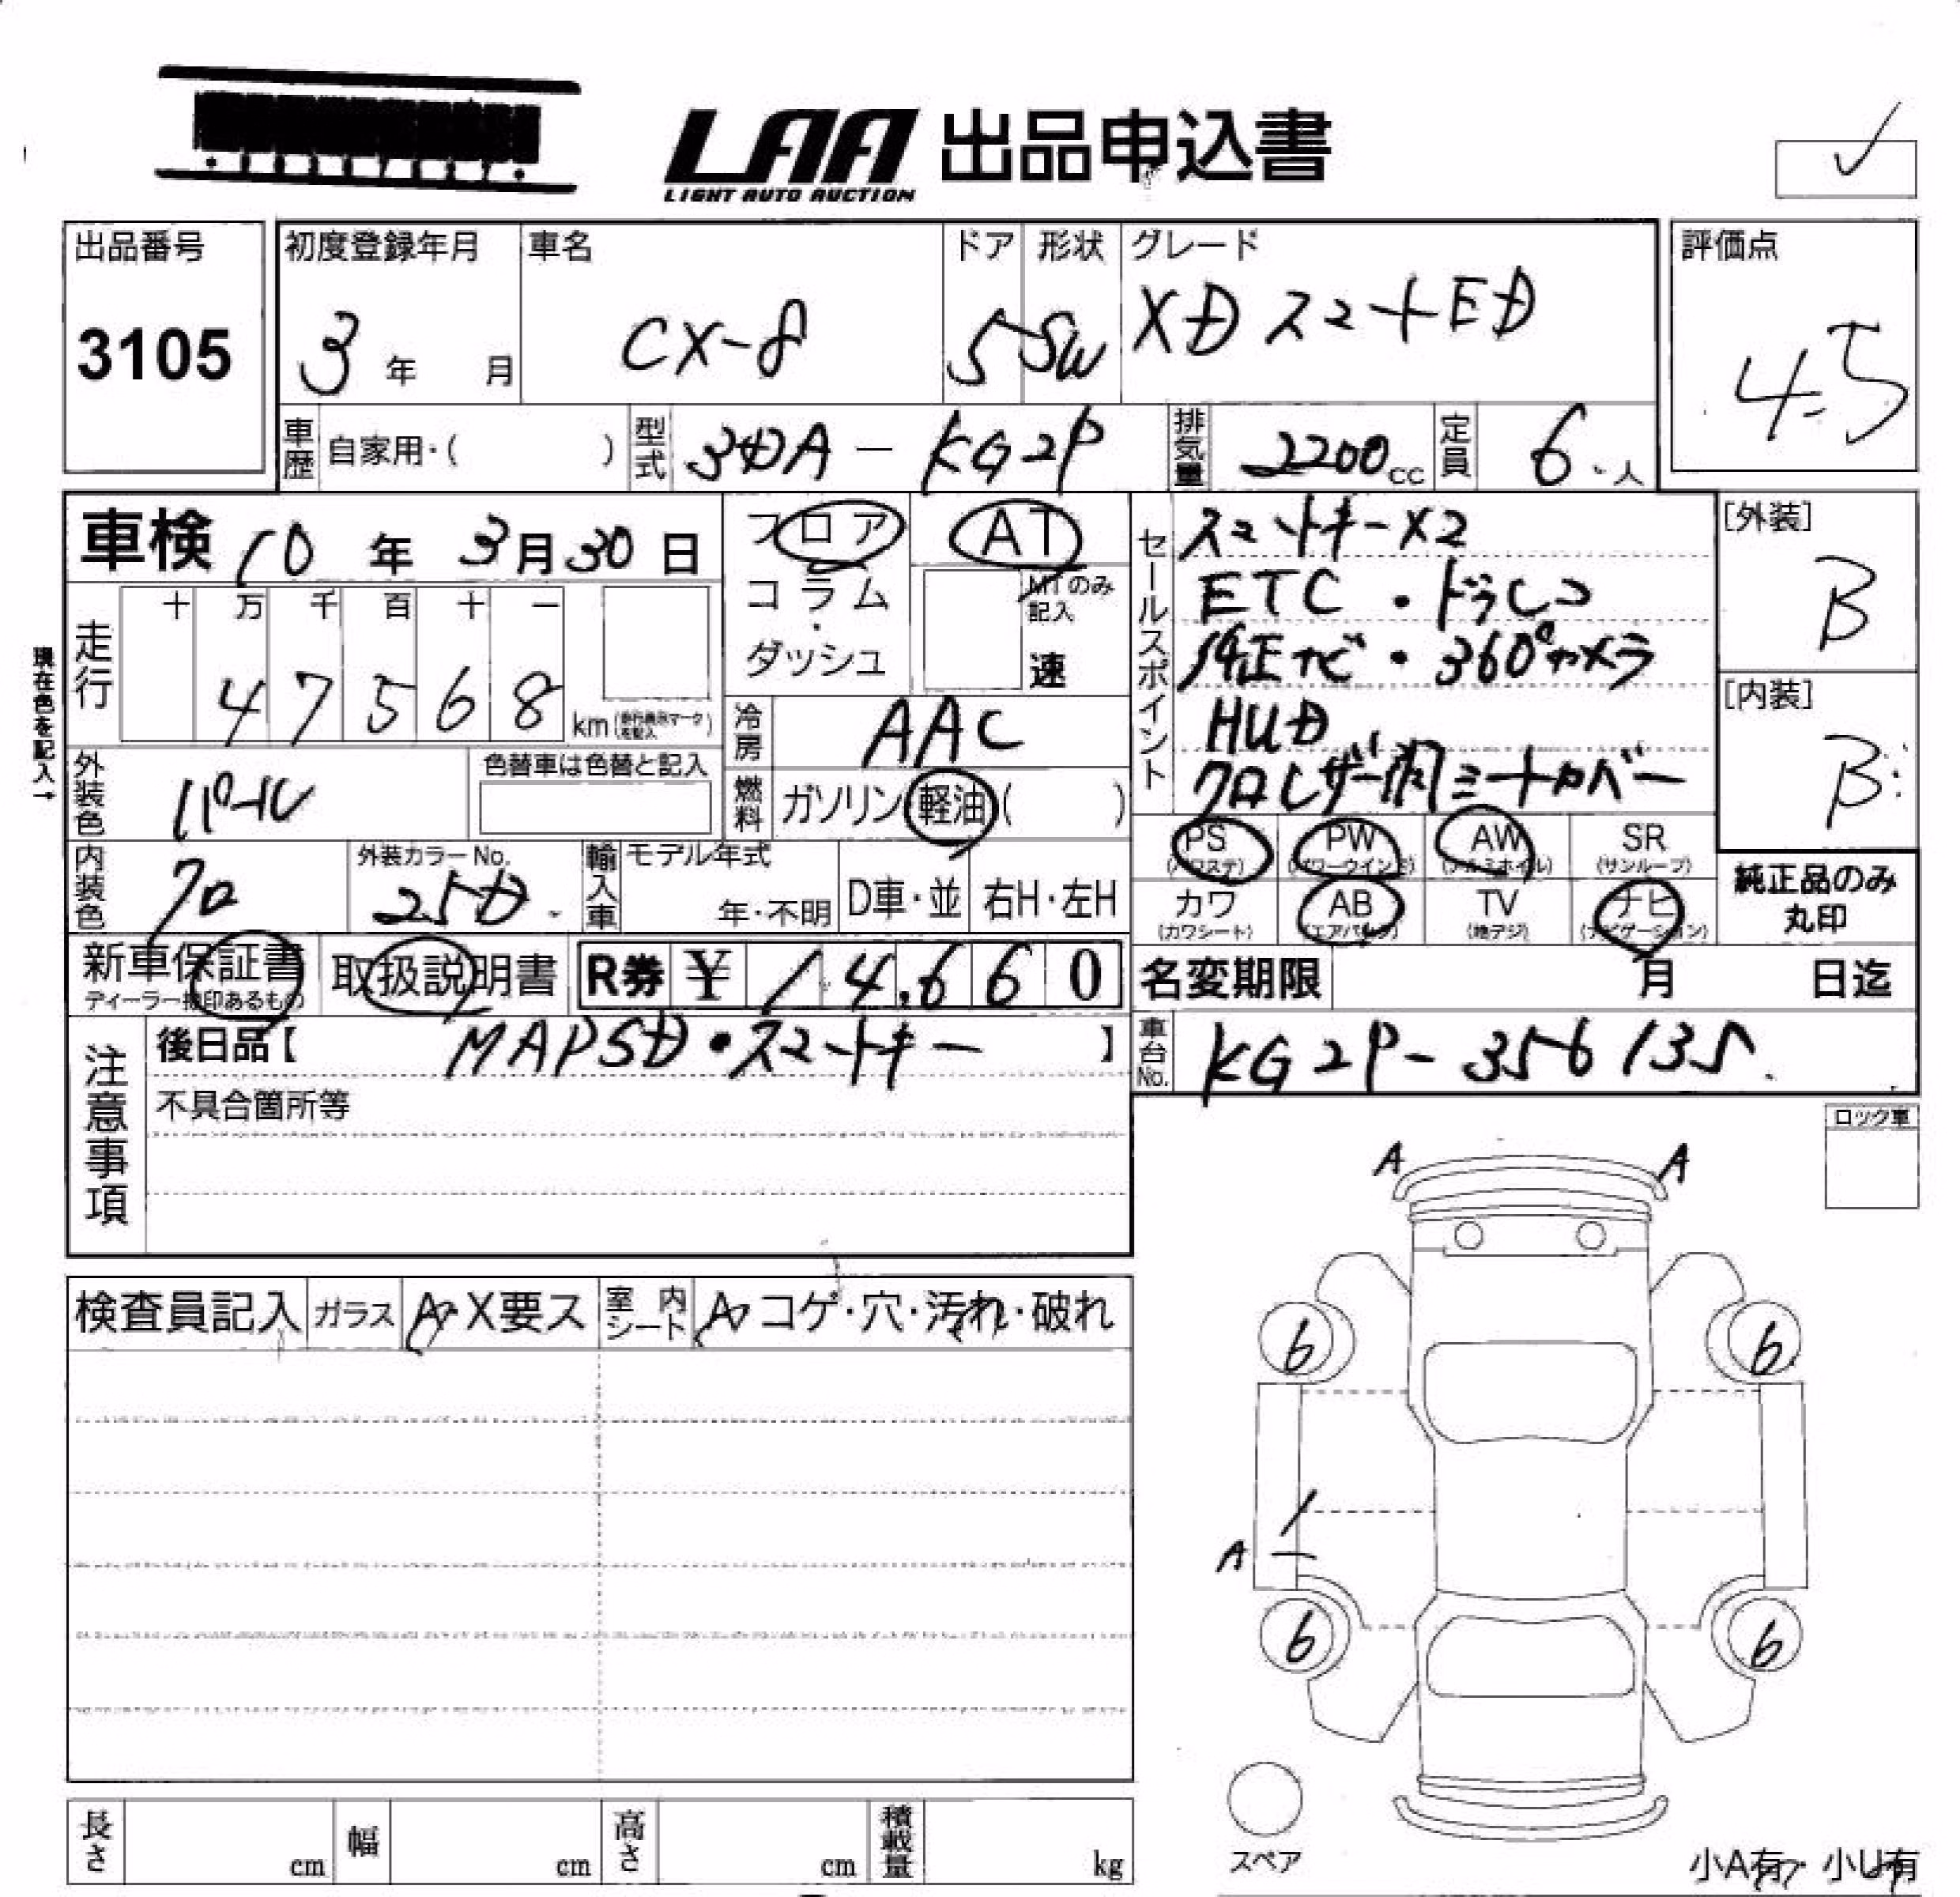 LAA 出品申込書
LIGHT AUTO AUCTION
出品番号
3105
初度登録年月
3年 月
車名
CX-8
ドア
5
形状
SW
グレード
XD スマートED
評価点
4.5
車歴
自家用・( )
型式
3DA-KG2P
排気量
2200cc
定員
6人
車検 10年 3月30日
現在色を記入→
走行
十 万 千 百 十 一
4 7 5 6 8
km
外装色
パール
色替車は色替と記入
内装色
クロ
外装カラーNo.
25D
輸入車
モデル年式
年・不明
D車・並
右H・左H
フロア
コラム
・
ダッシュ
AT
MTのみ
記入
速
冷房
AAC
燃料
ガソリン 軽油 ( )
セールスポイント
スマートキーX2
ETC・ドラレコ
純正ナビ・360°カメラ
HUD
クロレザー調シートカバー
[外装]
B
[内装]
B
PS
(パワステ)
PW
(パワーウインド)
AW
(アルミホイル)
SR
(サンルーフ)
カワ
(カワシート)
AB
(エアバック)
TV
(地デジ)
ナビ
(ナビゲーション)
純正品のみ
丸印
新車保証書
ディーラー捺印あるもの
取扱説明書
R券 ¥ 14,660
名変期限 月 日迄
車台No.
KG2P-356135
注意事項
後日品【 MAPSD・スマートキー 】
不具合箇所等
ロック車
検査員記入
ガラス
A・X要ス
室内シート
A・コゲ・穴・汚れ・破れ
A A
6 6
A
6 6
スペア
小A有・小U有
長さ cm
幅 cm
高さ cm
積載量 kg